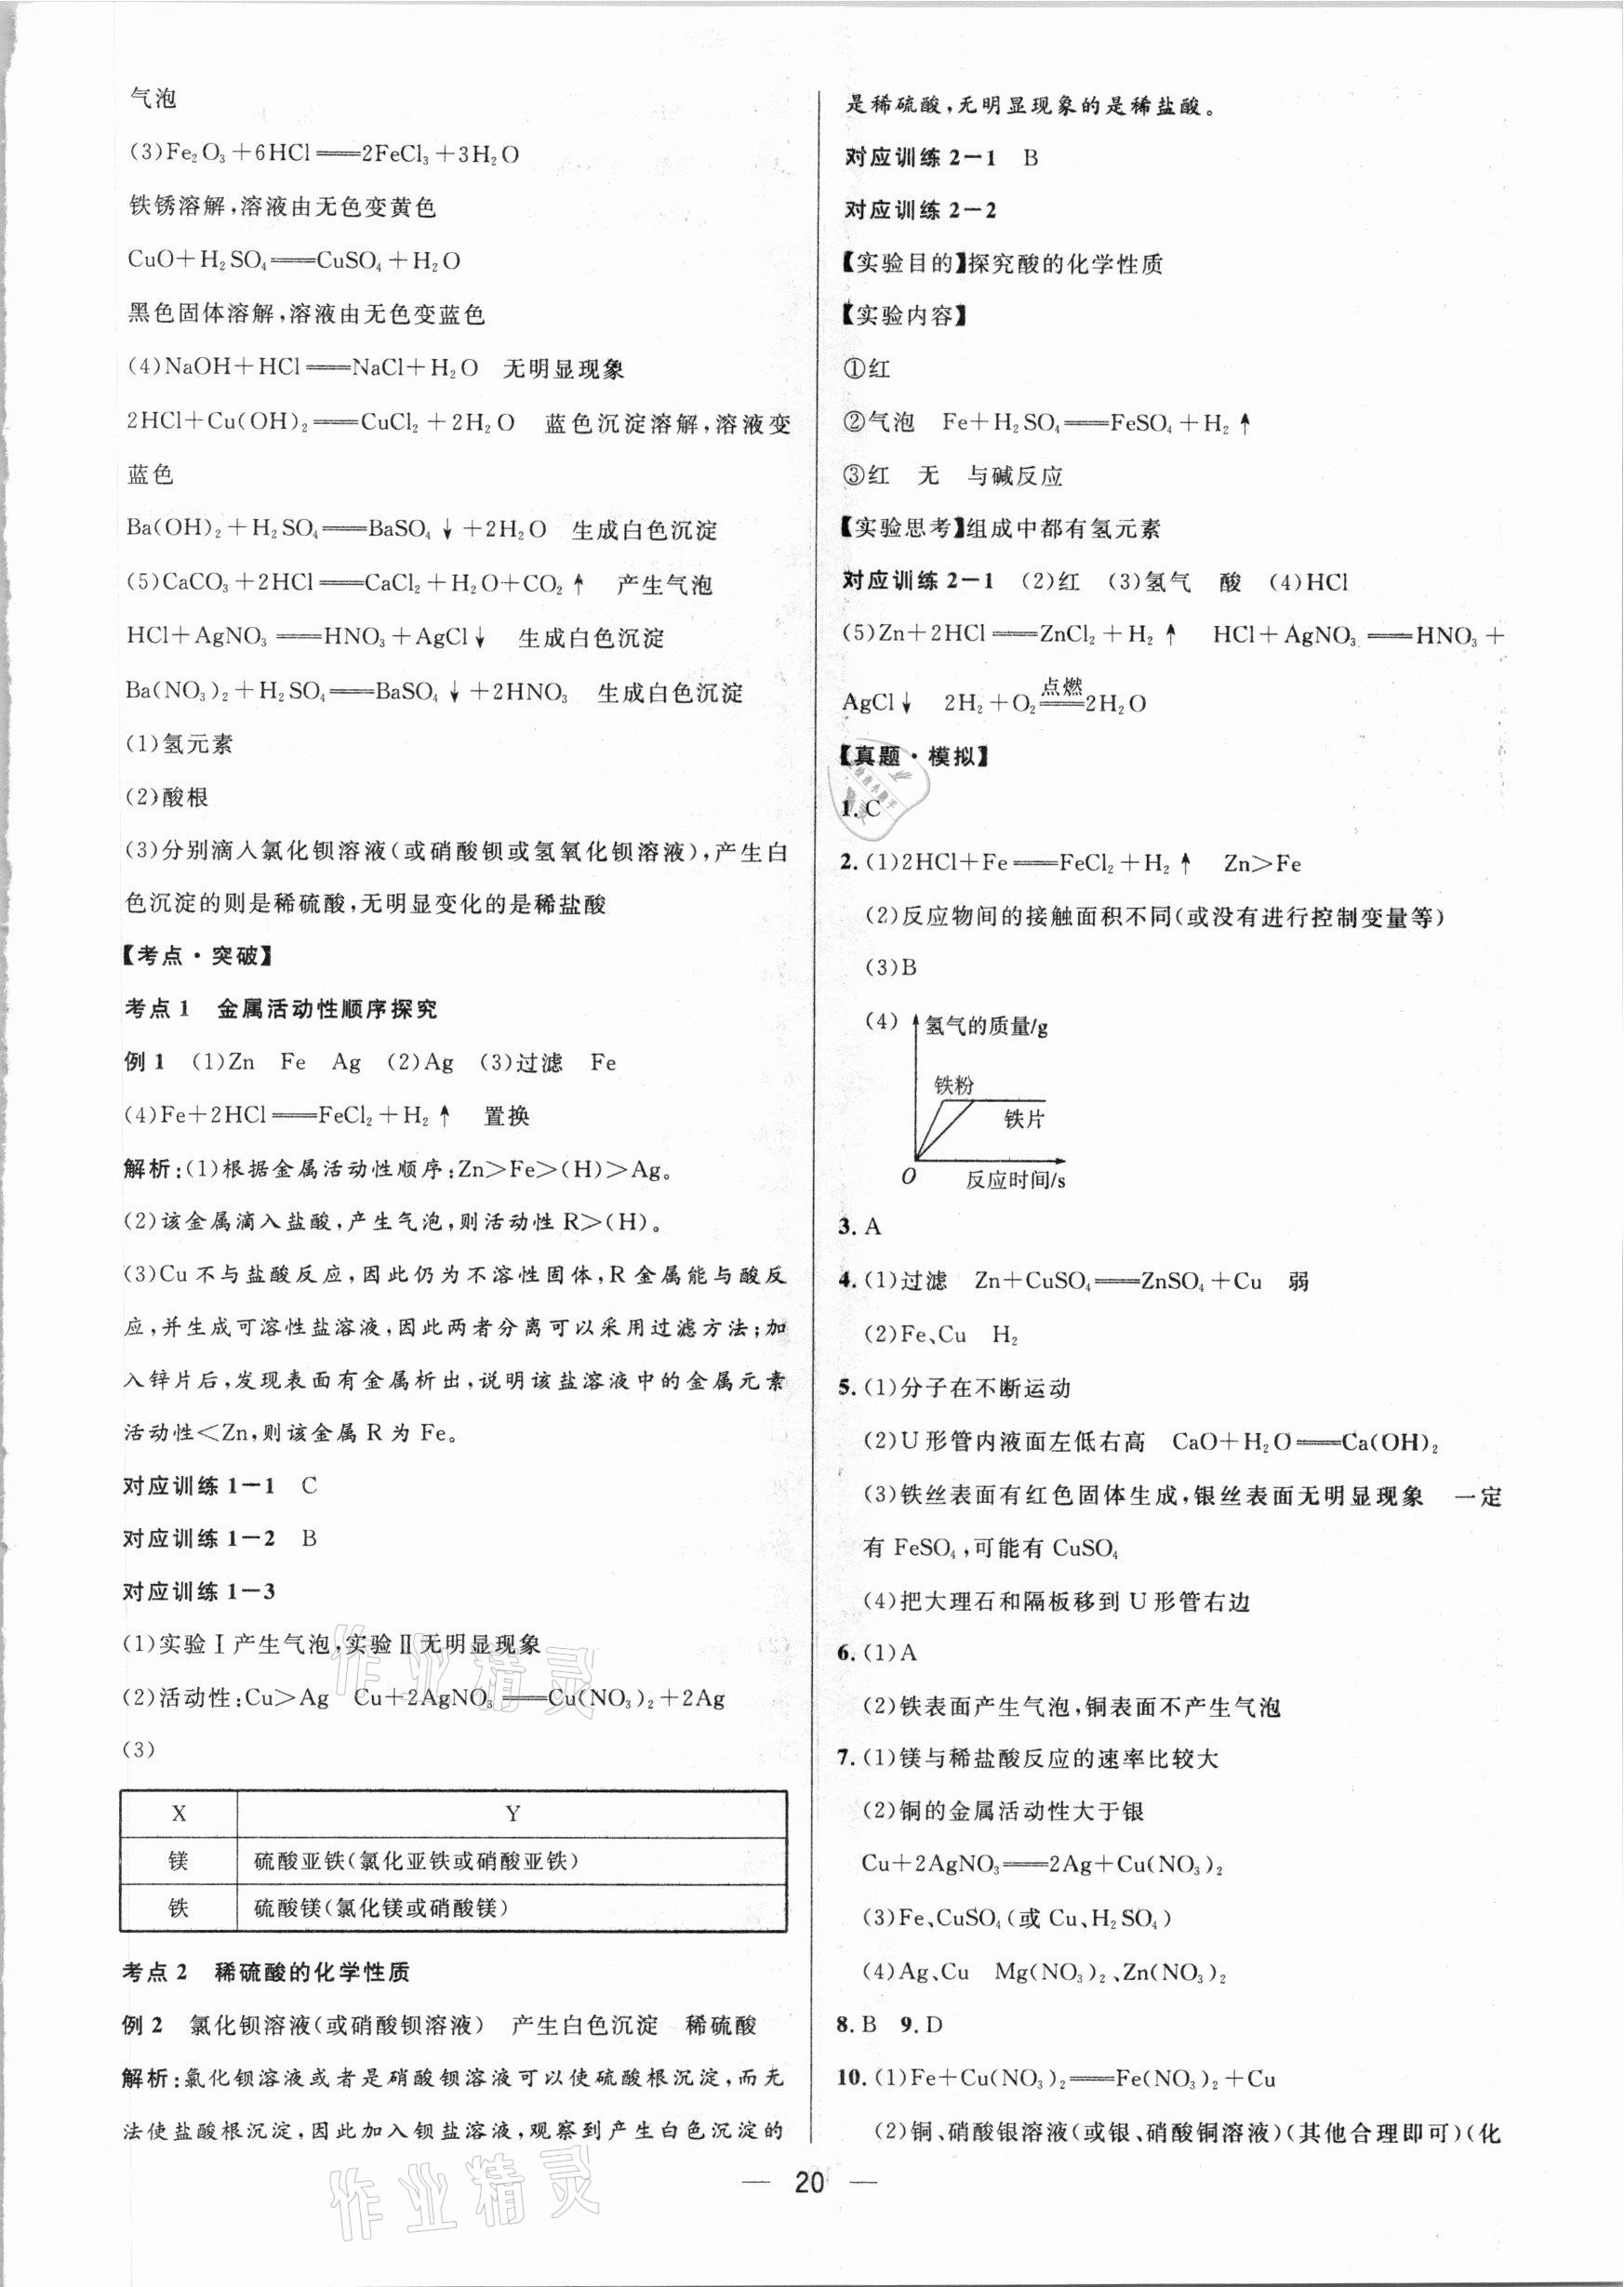 气泡
(3)Fe₂O₃+6HCl══2FeCl₃+3H₂O
铁锈溶解,溶液由无色变黄色
CuO+H₂SO₄══CuSO₄+H₂O
黑色固体溶解,溶液由无色变蓝色
(4)NaOH+HCl══NaCl+H₂O 无明显现象
2HCl+Cu(OH)₂══CuCl₂+2H₂O 蓝色沉淀溶解,溶液变
蓝色
Ba(OH)₂+H₂SO₄══BaSO₄↓+2H₂O 生成白色沉淀
(5)CaCO₃+2HCl══CaCl₂+H₂O+CO₂↑ 产生气泡
HCl+AgNO₃══HNO₃+AgCl↓ 生成白色沉淀
Ba(NO₃)₂+H₂SO₄══BaSO₄↓+2HNO₃ 生成白色沉淀
(1)氢元素
(2)酸根
(3)分别滴入氯化钡溶液(或硝酸钡或氢氧化钡溶液),产生白
色沉淀的则是稀硫酸,无明显变化的是稀盐酸
【考点·突破】
考点1 金属活动性顺序探究
例1 (1)Zn Fe Ag (2)Ag (3)过滤 Fe
(4)Fe+2HCl══FeCl₂+H₂↑ 置换
解析:(1)根据金属活动性顺序:Zn>Fe>(H)>Ag。
(2)该金属滴入盐酸,产生气泡,则活动性R>(H)。
(3)Cu不与盐酸反应,因此仍为不溶性固体,R金属能与酸反
应,并生成可溶性盐溶液,因此两者分离可以采用过滤方法;加
入锌片后,发现表面有金属析出,说明该盐溶液中的金属元素
活动性<Zn,则该金属R为Fe。
对应训练1-1 C
对应训练1-2 B
对应训练1-3
(1)实验Ⅰ产生气泡,实验Ⅱ无明显现象
(2)活动性:Cu>Ag Cu+2AgNO₃══Cu(NO₃)₂+2Ag
(3)
X Y
镁 硫酸亚铁(氯化亚铁或硝酸亚铁)
铁 硫酸镁(氯化镁或硝酸镁)
考点2 稀硫酸的化学性质
例2 氯化钡溶液(或硝酸钡溶液) 产生白色沉淀 稀硫酸
解析:氯化钡溶液或者是硝酸钡溶液可以使硫酸根沉淀,而无
法使盐酸根沉淀,因此加入钡盐溶液,观察到产生白色沉淀的
是稀硫酸,无明显现象的是稀盐酸。
对应训练2-1 B
对应训练2-2
【实验目的】探究酸的化学性质
【实验内容】
①红
②气泡 Fe+H₂SO₄══FeSO₄+H₂↑
③红 无 与碱反应
【实验思考】组成中都有氢元素
对应训练2-1 (2)红 (3)氢气 酸 (4)HCl
(5)Zn+2HCl══ZnCl₂+H₂↑ HCl+AgNO₃══HNO₃+
点燃
AgCl↓ 2H₂+O₂══2H₂O
【真题·模拟】
1. C
2. (1)2HCl+Fe══FeCl₂+H₂↑ Zn>Fe
(2)反应物间的接触面积不同(或没有进行控制变量等)
(3)B
(4) 氢气的质量/g
铁粉
铁片
O 反应时间/s
3. A
4. (1)过滤 Zn+CuSO₄══ZnSO₄+Cu 弱
(2)Fe、Cu H₂
5. (1)分子在不断运动
(2)U形管内液面左低右高 CaO+H₂O══Ca(OH)₂
(3)铁丝表面有红色固体生成,银丝表面无明显现象 一定
有FeSO₄,可能有CuSO₄
(4)把大理石和隔板移到U形管右边
6. (1)A
(2)铁表面产生气泡,铜表面不产生气泡
7. (1)镁与稀盐酸反应的速率比较大
(2)铜的金属活动性大于银
Cu+2AgNO₃══2Ag+Cu(NO₃)₂
(3)Fe、CuSO₄(或Cu、H₂SO₄)
(4)Ag、Cu Mg(NO₃)₂、Zn(NO₃)₂
8. B 9. D
10. (1)Fe+Cu(NO₃)₂══Fe(NO₃)₂+Cu
(2)铜、硝酸银溶液(或银、硝酸铜溶液)(其他合理即可)(化
— 20 —
作业精灵
作业精灵